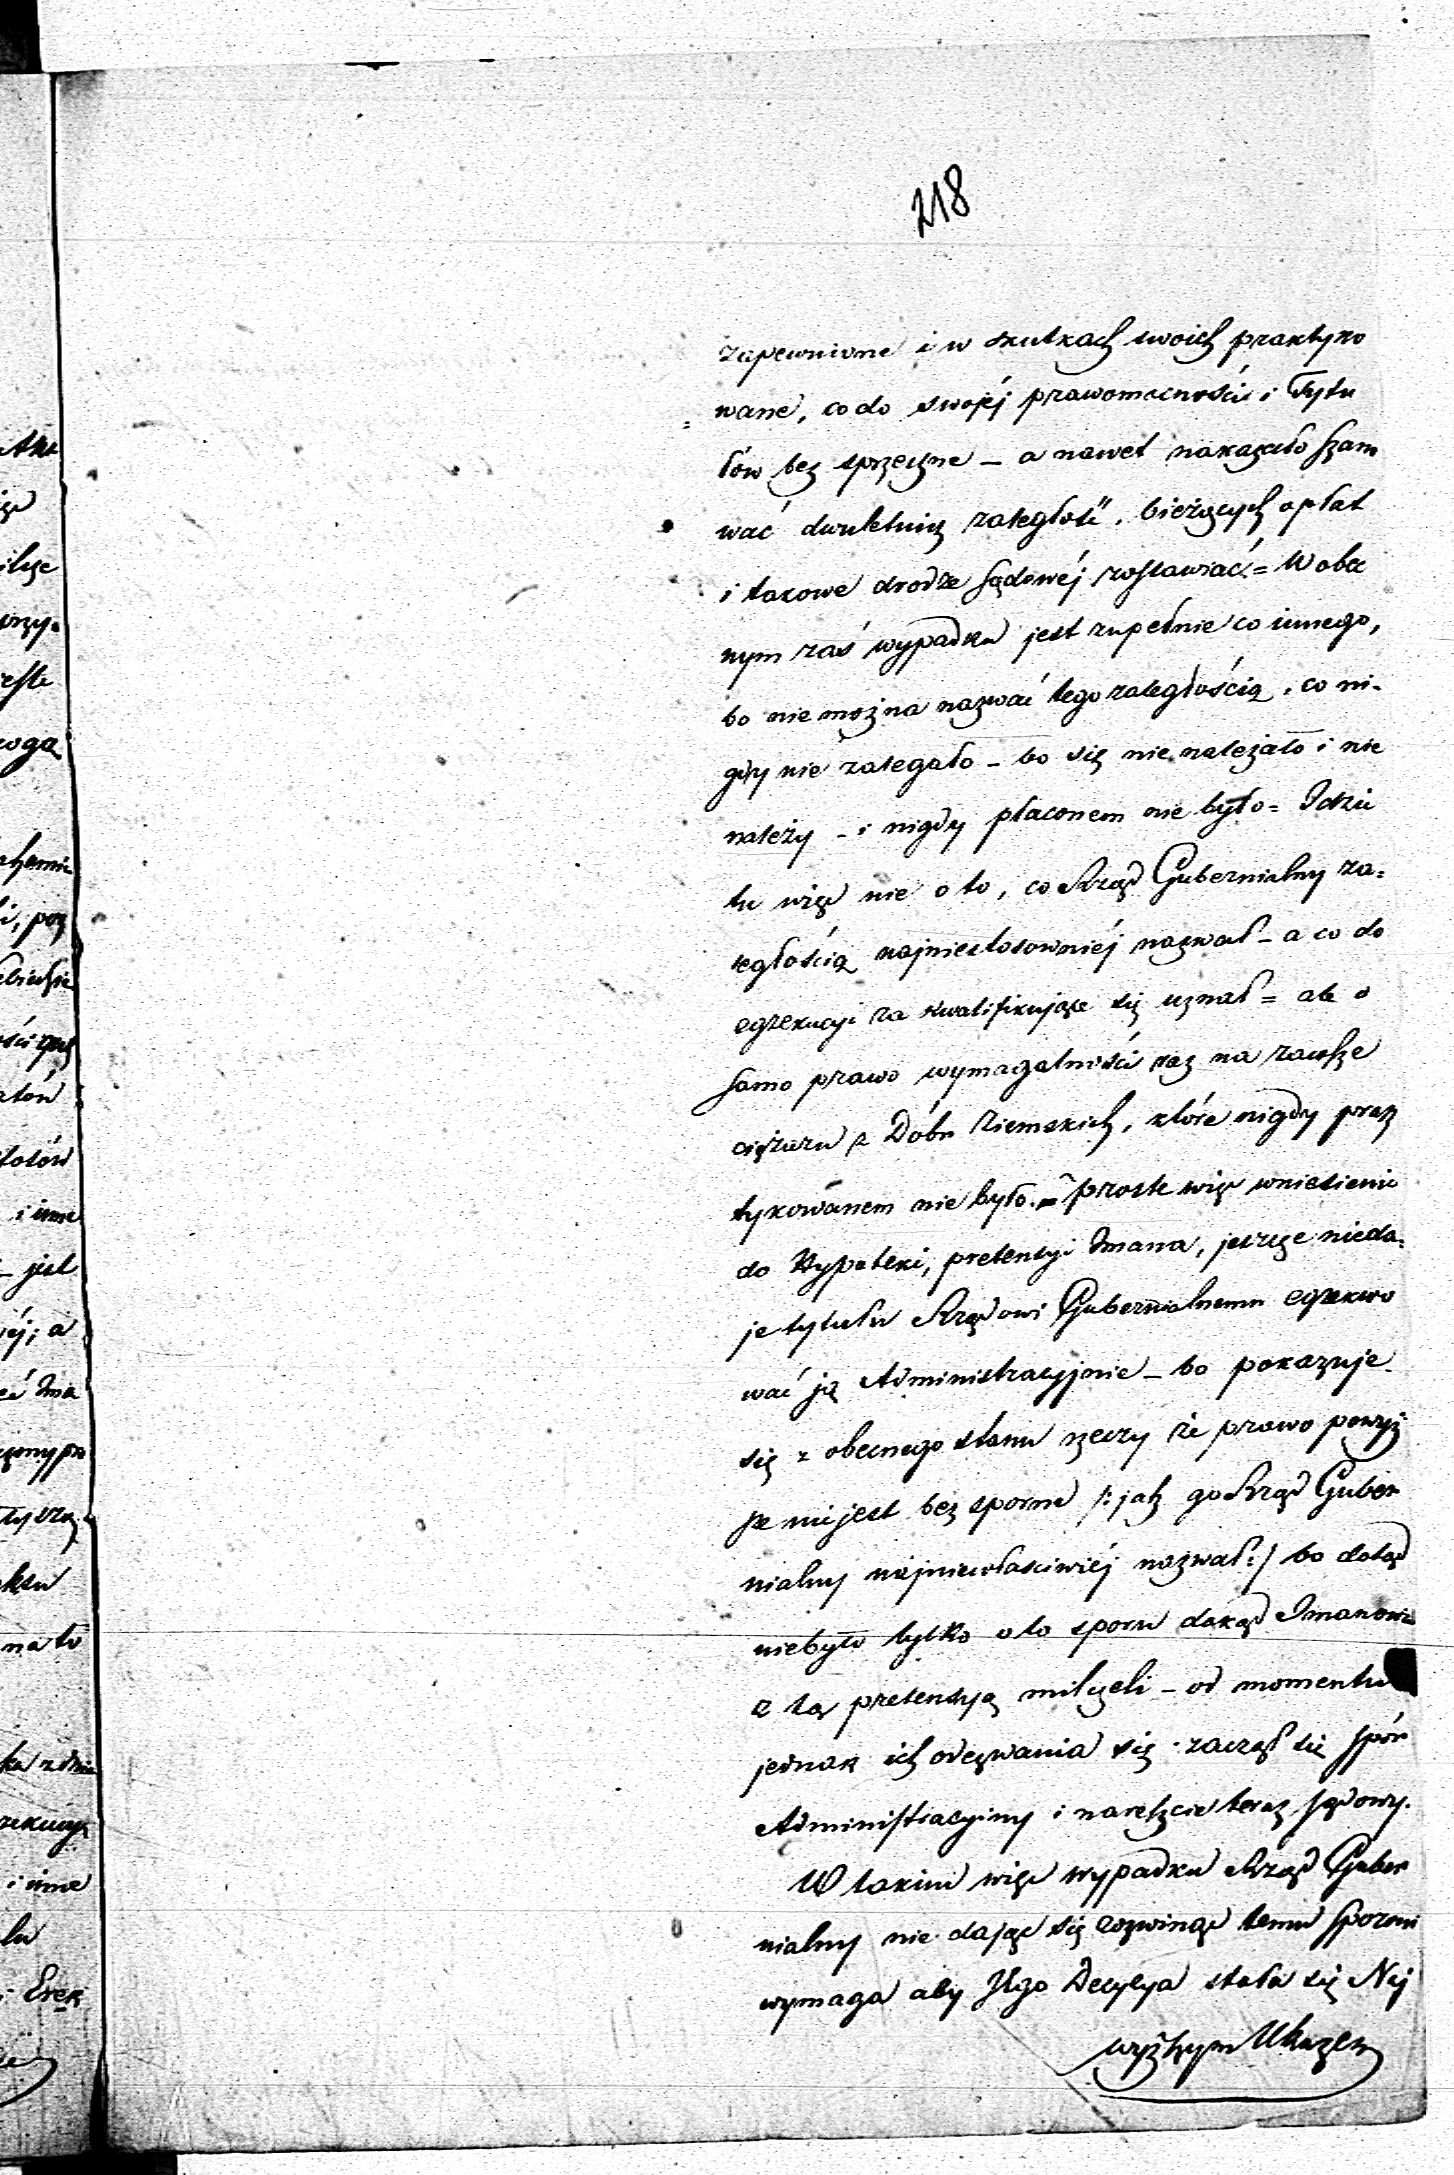 218
zapewnione i w skutkach swoich praktyko
wane, co do swojéj prawomocności i Tytu
łów bez sprzeczne – a nawet nakazało szano
wać dwuletnią zaległość bieżących opłat
i takowe drodze sądowéj zostawiać = W obec
nym zaś wypadku jest zupełnie co innego,
bo nie można nazwać tego zaległością, co ni-
gdy nie zalegało – bo się nie należało i nie
należy – i nigdy płaconem nie było = Idzie
tu więc nie o to, co Rząd Gubernialny za=
ległością najniestosowniéj nazwał – a co do
egzekucyi za kwalifikujące się uznał = ale o
samo prawo wymagalności raz na zawsze
ciężaru z Dóbr Ziemskich, które nigdy prak
tykowanem nie było. = proste więc wniesienie
do Hypoteki, pretensyi Imana, jeszcze nieda=
je tytułu Rządowi Gubernialnemu egzekwo
wać ją Administracyjnie – bo pokazuje
się z obecnego stanu rzeczy że prawo powyż
sze nie jest bez sporne /: jak go Rząd Guber
nialny najniewłaściwiéj nazwał :/ bo dotąd
niebyło tylko o to sporu dokąd Imanowie
z tą pretensyą milczeli – od momentu
jednak ich odezwania się zaczął się spór
Administracyjny i nareszcie teraz sądowy.
W takim więc wypadku Rząd Guber
nialny nie dając się rozwinąć temu sporowi
wymaga aby Jego Decyzya stała się Naj
wyższym Ukazem